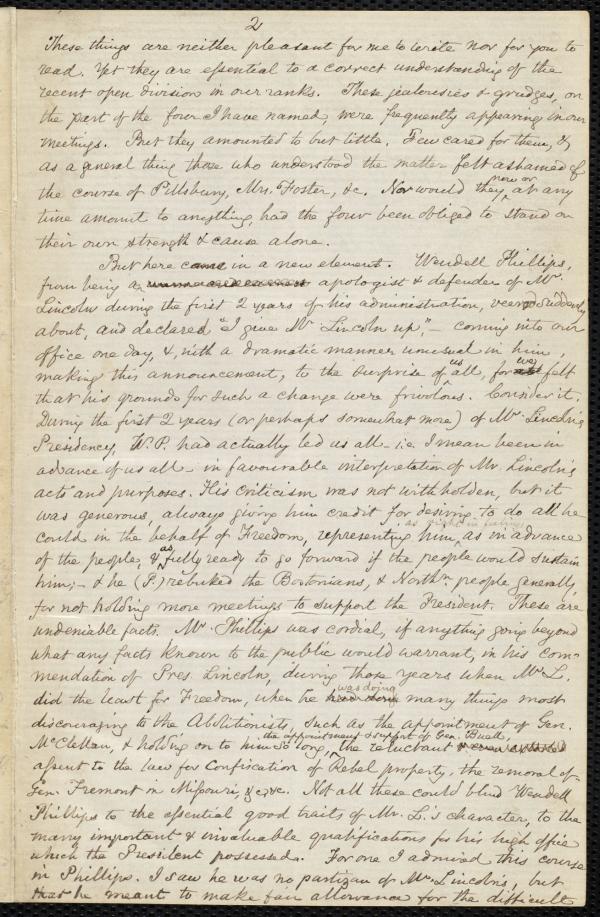 2
These things are neither pleasant for me to write nor for you to
read. Yet they are essential to a correct understanding of the
recent open division in our ranks. These jealousies & grudges, on
the part of the four I have named, were frequently appearing in our
meetings. But they amounted to but little. Few cared for them, &
as a general thing those who understood the matter felt ashamed of
the course of Pillsbury, Mrs. Foster, &c. Nor would they now or at any
time amount to anything, had the four been obliged to stand on
their own strength & cause alone.
But here came in a new element. Wendell Phillips,
from being a apologist & defender of Mr.
Lincoln during the first 2 years of his administration, veered suddenly
about, and declared "I give Mr. Lincoln up", - coming into our
office one day, &, with a dramatic manner unusual in him,
making this announcement, to the surprise of us all, for we felt
that his grounds for such a change were frivolous. Consider it.
During the first 2 years (or perhaps somewhat more) of Mr. Lincoln's
Presidency, W.P. had actually led us all - i.e. I mean been in
advance of us all - in favourable interpretation of Mr. Lincoln's
acts and purposes. His criticism was not withholden, but it
was generous, always giving him credit for desiring to do all he
could in the behalf of Freedom, representing him, as in advance
of the people, & as fully ready to go forward if the people would sustain
him; - & he (P.) rebuked the Bostonians, & Northn people generally,
for not holding more meetings to support the President. These are
undeniable facts. Mr. Phillips was cordial, if anything going beyond
what any facts known to the public would warrant, in his com-
mendation of Pres. Lincoln, during those years when Mr. L.
did the least for Freedom, when he was doing many things most
discouraging to the Abolitionists, such as the appointment of Gen.
McClellan, & holding on to him so long, the appointment & support of Gen. Buell, the reluctant
assent to the law for Confiscation of Rebel property, the removal of
Gen. Fremont in Missouri, &c. &c. Not all these could blind Wendell
Phillips to the essential good traits of Mr. L.'s character, to the
many important & invaluable qualifications for his high office
which the President possessed. For one I admired this course
in Phillips. I saw he was no partizan of Mr. Lincoln's, but
that he meant to make fair allowance for the difficult